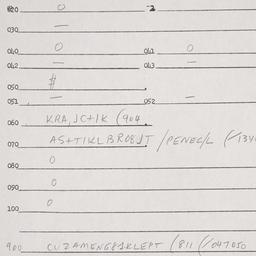 020 0 -2
030 —
040 0 041 0
042 — 043 —
050 #
051 — 052 —
060 KRA, JC+IK (904
070 /PENEC/L (/134
080 0
090 0
100 0
900 (811 (/047050